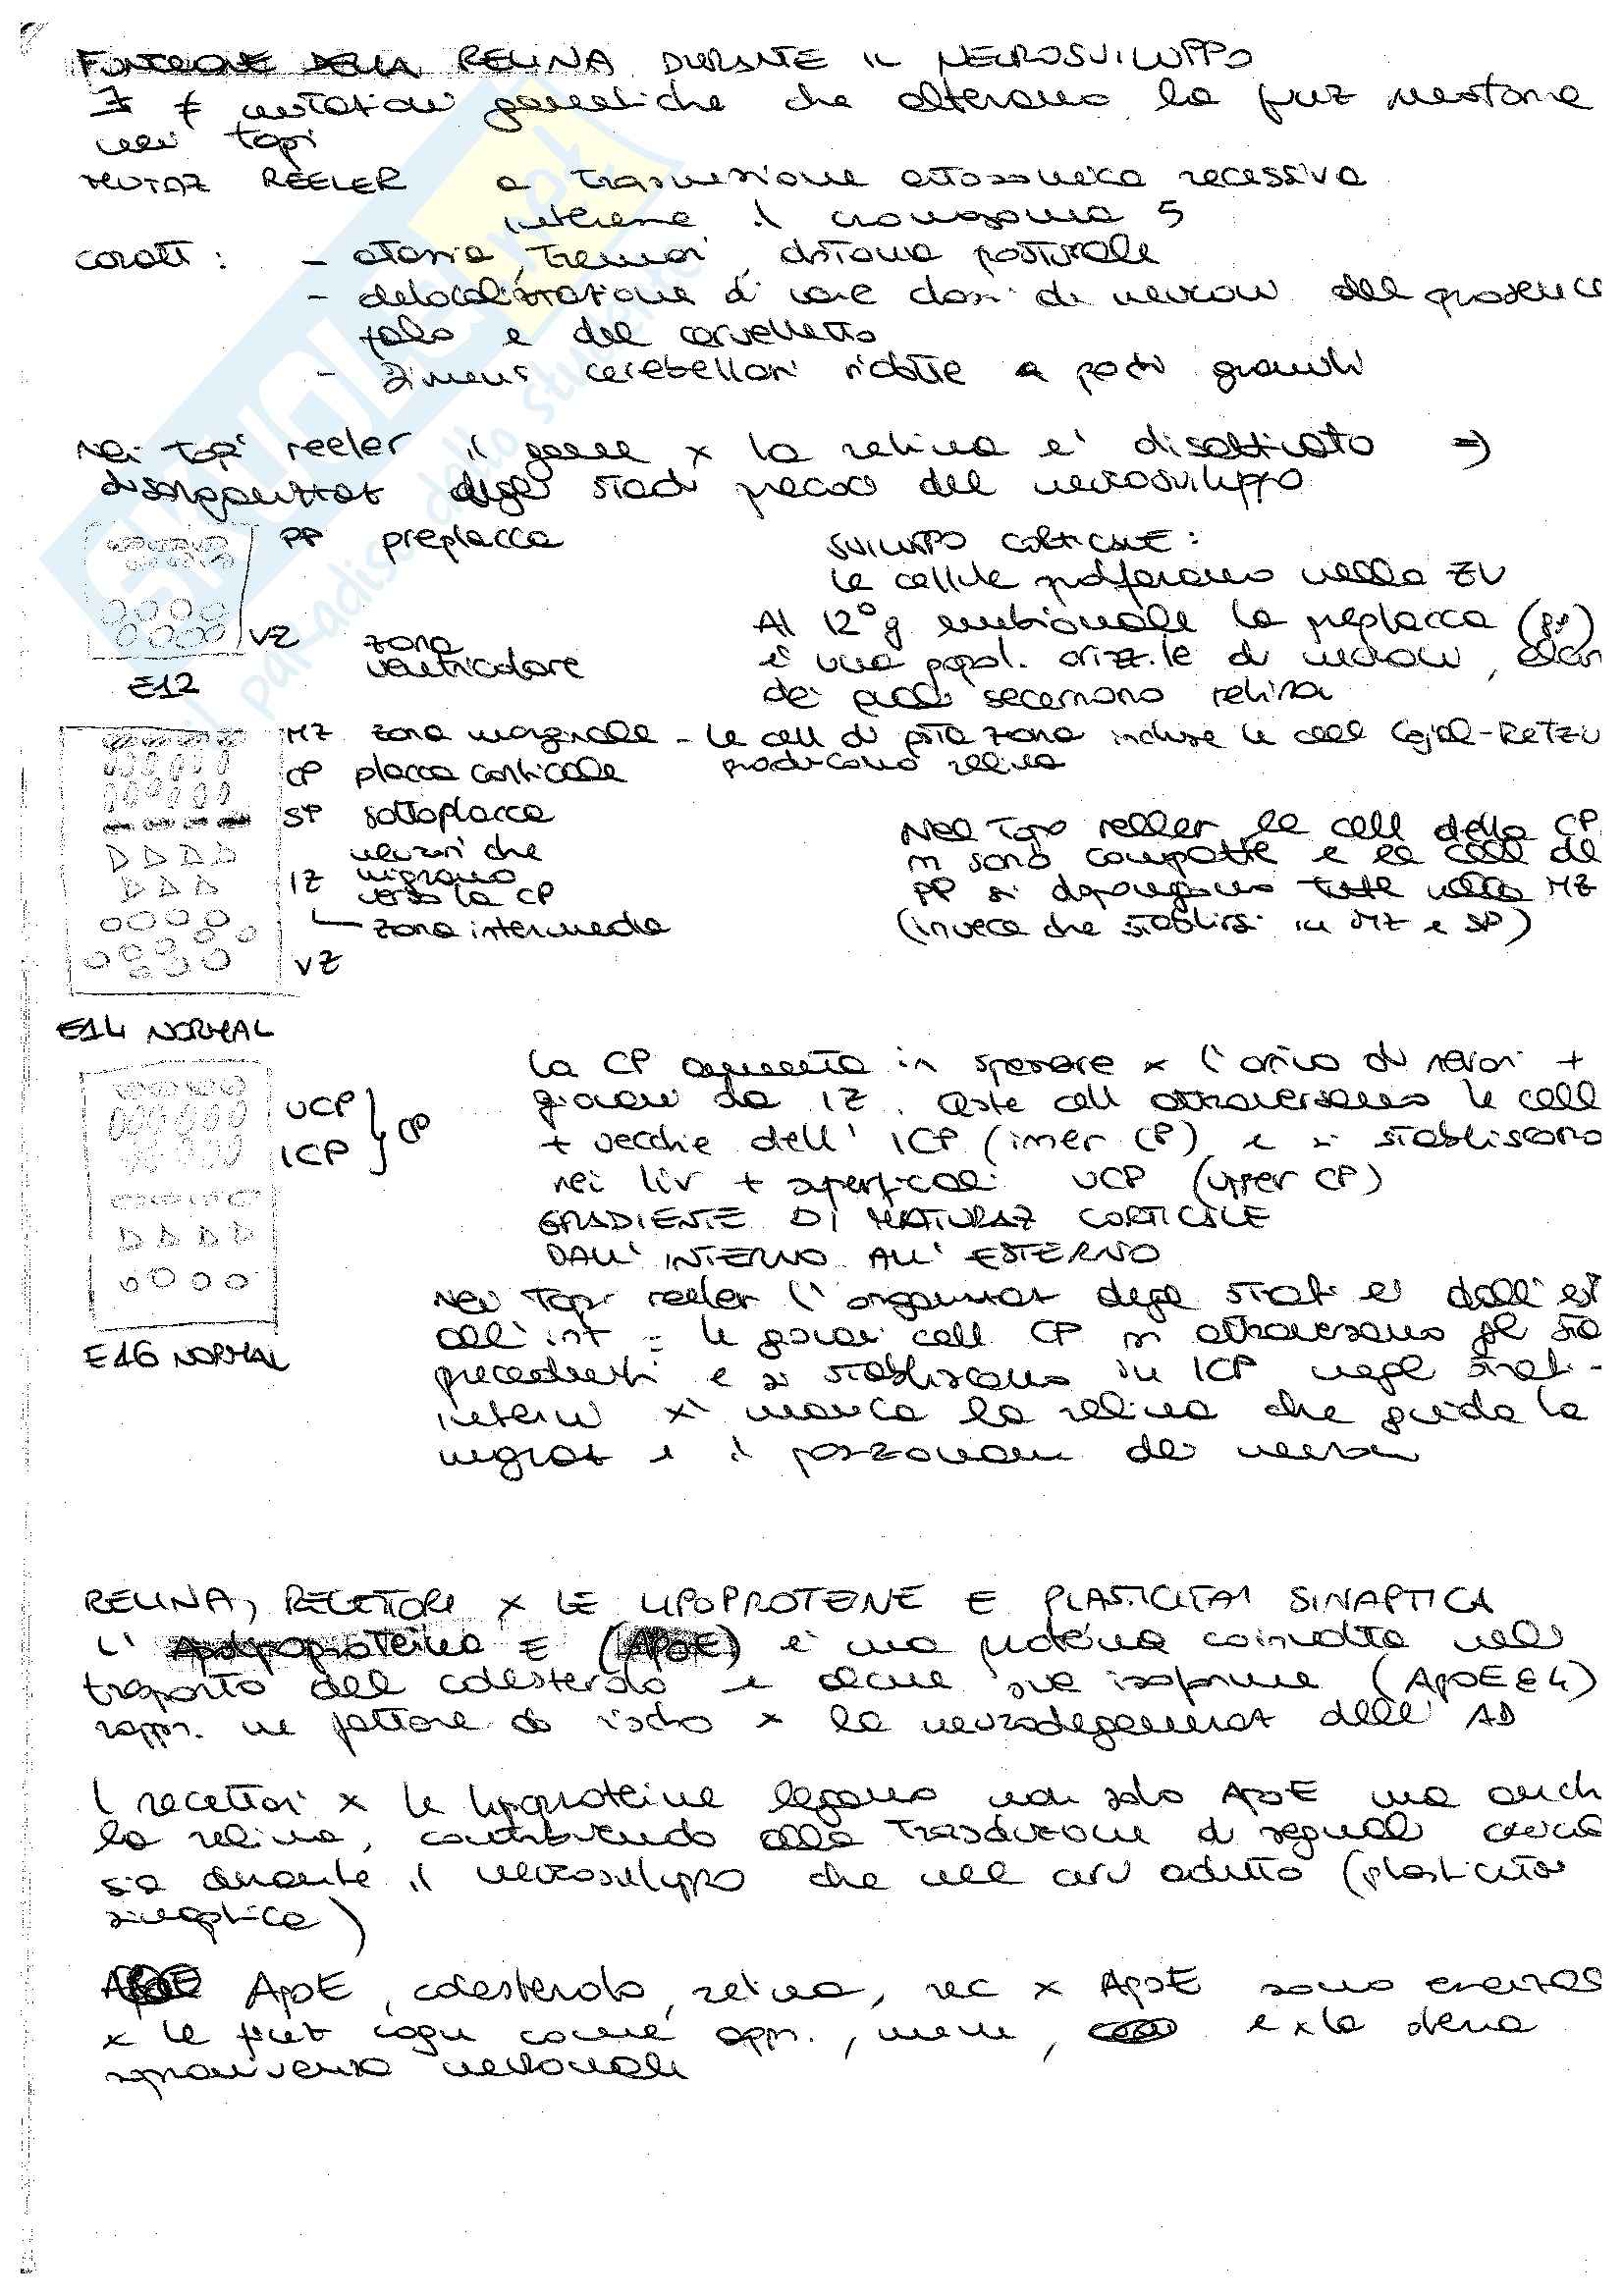 FUNZIONE DELLA RELINA DURANTE IL NEUROSVILUPPO
∃ ≠ mutazioni genetiche che alterano la funz motoria
nei topi
MUTAZ REELER a trasmissione autosomica recessiva
interessa il cromosoma 5
caratt : - atassia, tremori, distonia posturale
- delocalizzazione di varie classi di neuroni del prosence
falo e del cervelletto
- dimens cerebellari ridotte e pochi granuli
Nei topi reeler il gene x la relina e' disattivato ⇒
disorganizzaz degli stadi precoci del neurosviluppo
PP preplacca
SVILUPPO CORTICALE :
le cellule proliferano nella ZV
VZ zona
ventricolare
E12
Al 12° g embrionale la preplacca (PP)
e' una popol. orizz.le di neuroni, alcuni
dei quali secernono relina
MZ zona marginale - le cell di qsta zona incluse le cell Cajal-Retziu
producono relina
CP placca corticale
SP sottoplacca
neuroni che
IZ migrano
verso la CP
zona intermedia
VZ
E14 NORMAL
Nel topo reeler le cell della CP
n sono compatte e le cell de
PP si dispongono tutte nella MZ
(invece che stabilirsi in MZ e SP)
UCP
ICP
CP
E16 NORMAL
la CP aumenta in spessore x l'arrivo di neuroni +
giovani da IZ. Queste cell attraversano le cell
+ vecchie dell' ICP (inner CP) e si stabiliscono
nei liv + superficiali UCP (upper CP)
GRADIENTE DI MATURAZ CORTICALE
DALL' INTERNO ALL' ESTERNO
Nei topi reeler l'organizzaz degli strati e' dall'est
all'int = le giovani cell CP n attraversano gli stra
precedenti e si stabiliscono in ICP negli strati
interni xi' manca la relina che guida la
migraz e il posizionam dei neuroni
RELINA, RECETTORI x LE LIPOPROTEINE E PLASTICITA' SINAPTICA
L' Apolipoproteina E (APoE) e' una proteina coinvolta nel
trasporto del colesterolo e alcune sue isoforme (ApoE ε4)
rappr. un fattore di rischio x la neurodegeneraz dell' AD
I recettori x le lipoproteine legano non solo ApoE ma anch
la relina, contribuendo alla trasduzione di segnali cruciali
sia durante il neurosviluppo che nell SNC adulto (plasticita'
sinaptica)
ApoE, colesterolo, relina, rec x ApoE sono
x le funz cogn come appr., mem, e x la
sopravvivenza neuronale